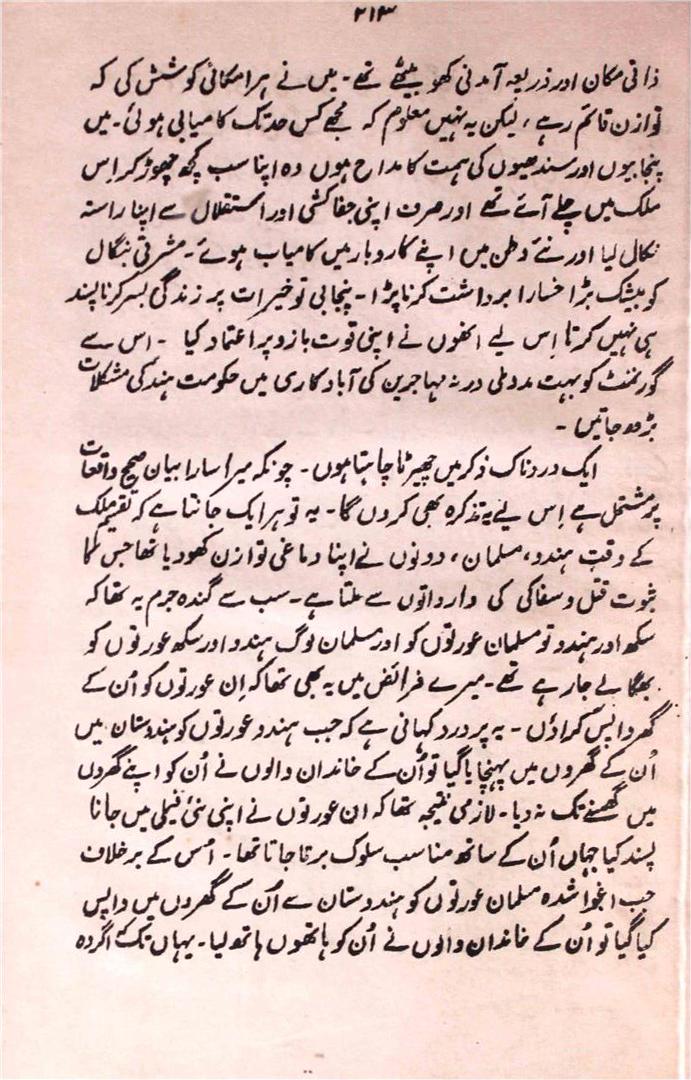 ۲۱۳
ذاتی مکان اور ذریعہ آمدنی کھو بیٹھے تھے۔ میں نے ہر امکانی کوشش کی کہ
توازن قائم رہے، لیکن یہ نہیں معلوم کہ مجھے کس حد تک کامیابی ہوئی۔ میں
پنجابیوں اور سندھیوں کی ہمت کا مداح ہوں وہ اپنا سب کچھ چھوڑ کر اِس
ملک میں چلے آئے تھے اور صرف اپنی جفاکشی اور استقلال سے اپنا راستہ
نکال لیا اور نئے وطن میں اپنے کاروبار میں کامیاب ہوئے۔ مشرقی بنگال
کو بیشک بڑا خسارا برداشت کرنا پڑا۔ پنجابی تو خیرات پر زندگی بسر کرنا پسند
ہی نہیں کرتا اِس لیے انھوں نے اپنی قوت بازو پر اعتماد کیا ۔ اس سے
گورنمنٹ کو بہت مدد ملی ورنہ مہاجرین کی آبادکاری میں حکومت ہند کی مشکلات
بڑھ جاتیں ۔
ایک دردناک ذکر میں چھیڑنا چاہتا ہوں۔ چونکہ میرا سارا بیان صحیح واقعات
پر مشتمل ہے اِس لیے یہ تذکرہ بھی کروں گا۔ یہ تو ہر ایک جانتا ہے کہ تقسیم ملک
کے وقت ہندو، مسلمان، دونوں نے اپنا دماغی توازن کھو دیا تھا جس کا
ثبوت قتل و سفاکی کی وارداتوں سے ملتا ہے۔ سب سے گندہ جرم یہ تھا کہ
سکھ اور ہندو تو مسلمان عورتوں کو اور مسلمان لوگ ہندو اور سکھ عورتوں کو
بھگا لے جا رہے تھے۔ میرے فرائض میں یہ بھی تھا کہ اِن عورتوں کو اُن کے
گھر واپس کراؤں ۔ یہ پر درد کہانی ہے کہ جب ہندو عورتوں کو ہندوستان میں
اُن کے گھروں میں پہنچایا گیا تو اُن کے خاندان والوں نے اُن کو اپنے گھروں
میں گھسنے تک نہ دیا۔ لازمی نتیجہ تھا کہ ان عورتوں نے اپنی نئی فیملی میں جانا
پسند کیا جہاں اُن کے ساتھ مناسب سلوک برتا جاتا تھا۔ اُس کے برخلاف
جب اغوا شدہ مسلمان عورتوں کو ہندوستان سے اُن کے گھروں میں واپس
کیا گیا تو اُن کے خاندان والوں نے اُن کو ہاتھوں ہاتھ لیا۔ یہاں تک کہ اگر وہ